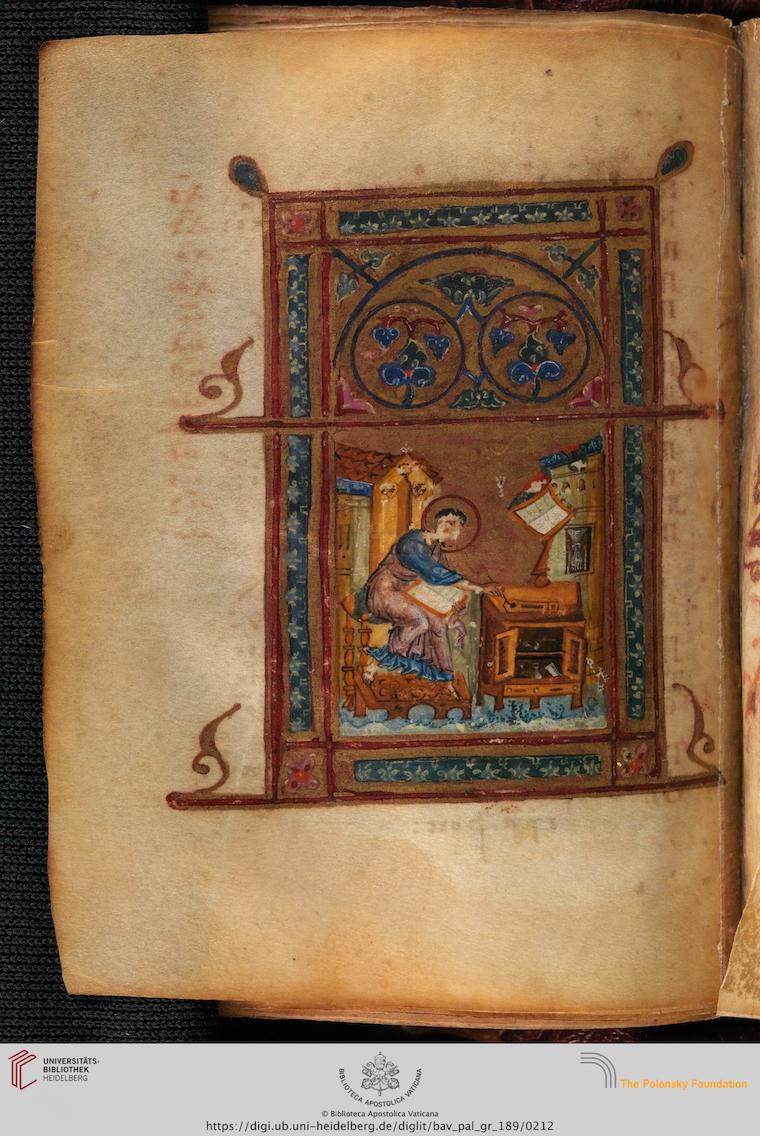 UNIVERSITÄTS-
BIBLIOTHEK
HEIDELBERG
BIBLIOTECA APOSTOLICA VATICANA
© Biblioteca Apostolica Vaticana
The Polonsky Foundation
https://digi.ub.uni-heidelberg.de/diglit/bav_pal_gr_189/0212